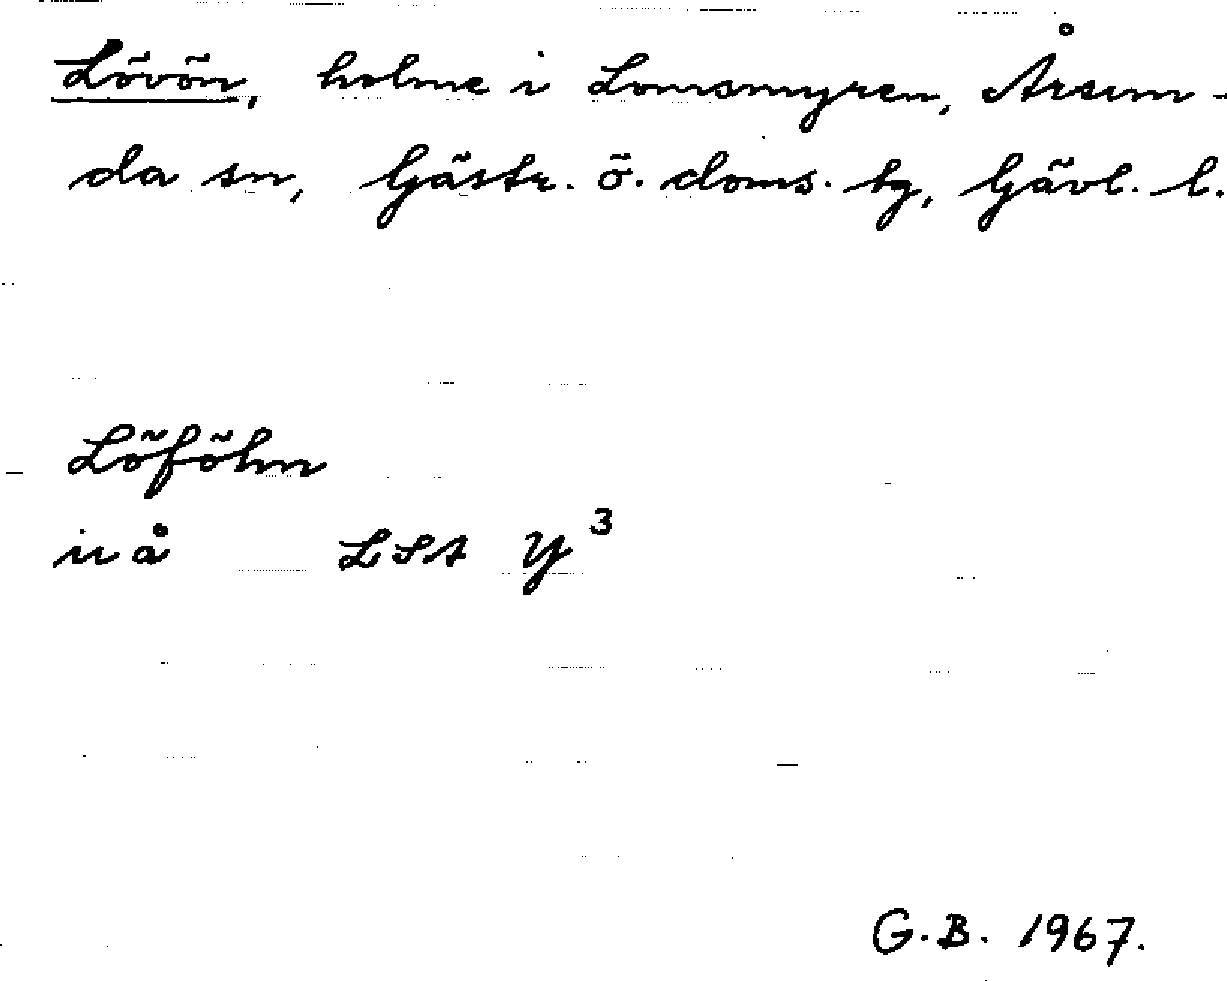 Lövön, holme i Lomsmyren, Årsun-
da sn, Gästr. ö. doms. tg, Gävl. l.
Löföhn
i å LSA Y 3
G.B. 1967.